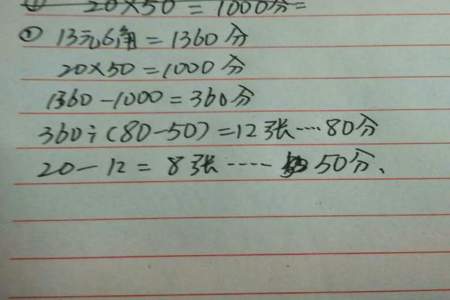 ① 20×50=1000分=
② 13元6角=1360分
20×50=1000分
1360-1000=360分
360÷(80-50)=12张····80分
20-12=8张····50分、